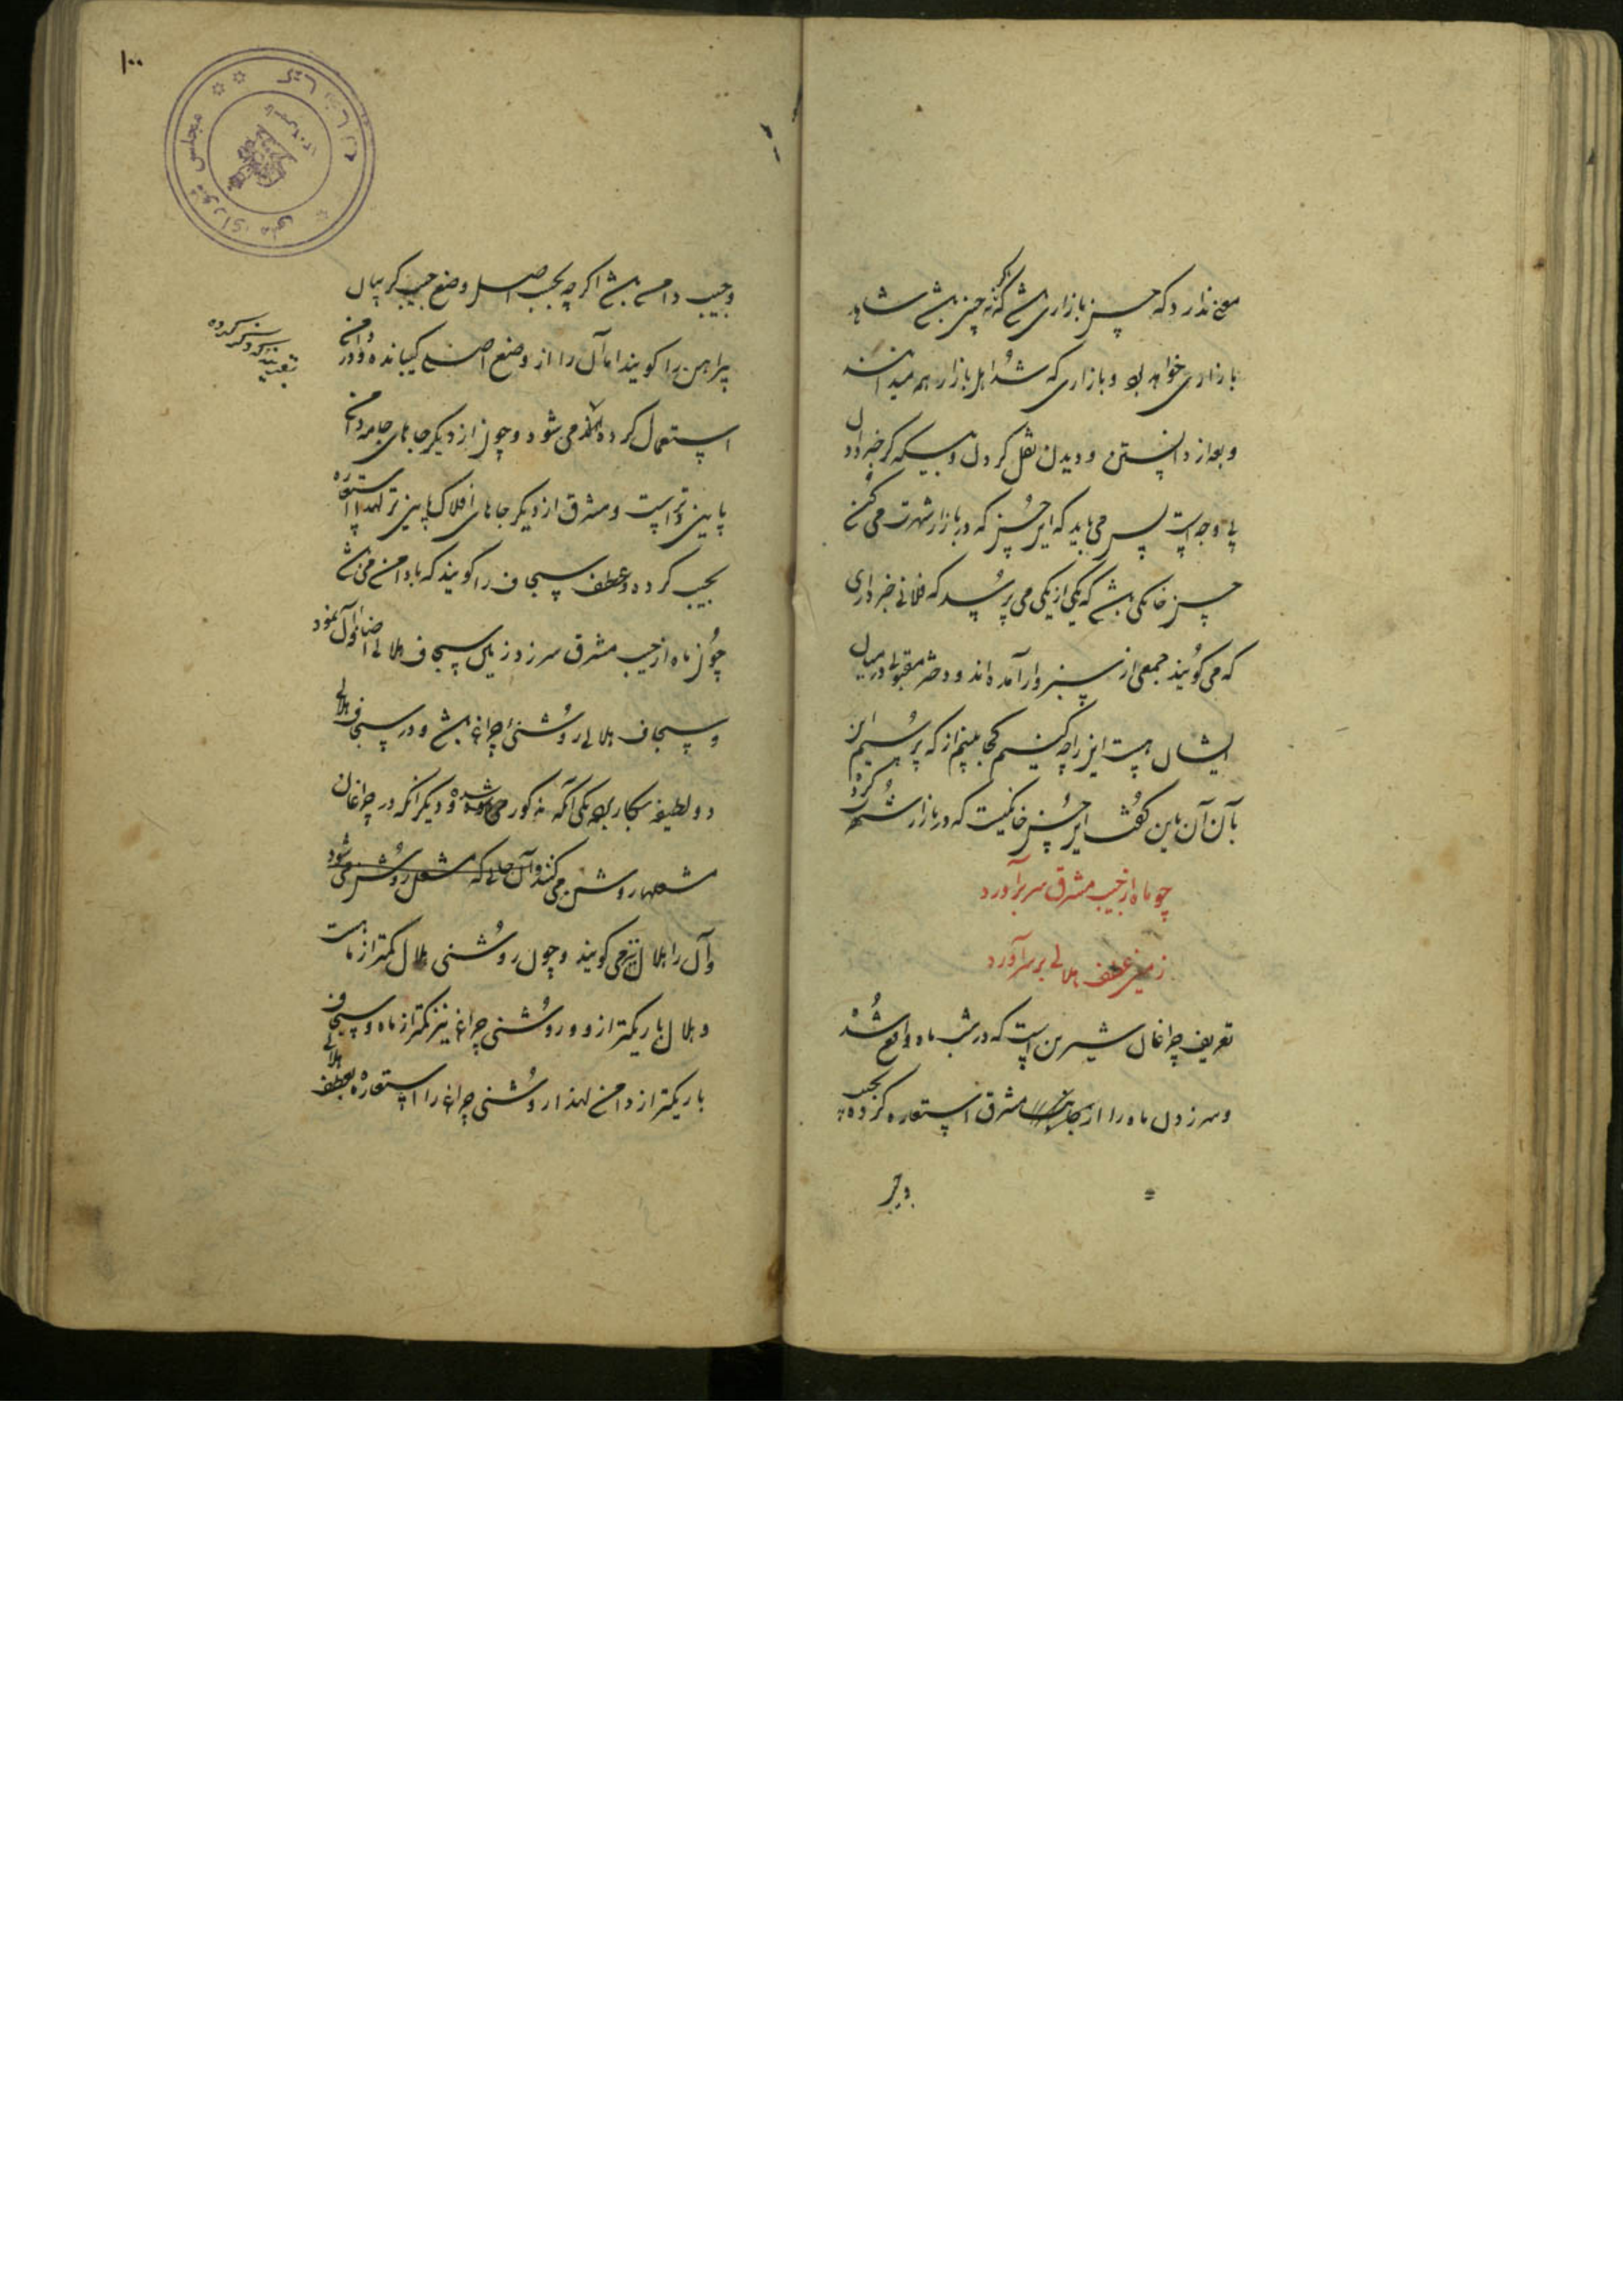 معنی ندارد که حسن بازاری باشد که نه چنین باشد شاید
بازاری خواهد بود و بازاری که شد اهل بازار هم میدانند
و بعد از دانستن و دیدن نقل کردن و خبر دادن
وجه است پس می باید که این حسن که در بازار شهرت می کند
حسن خانگی باشد که یکی از یکی می پرسد که فلانی خبر داری
که می گویند جمعی از سبزوار آمده اند و دختر مقبولی در میان
ایشان هست این را چه کنیم کجا ببینم از که پرسیم این
بآن آن باین گفت این حسن خانگیست که در بازار شهرت کرد
چو ماه از جیب مشرق سر برآورد
زمین عطف هلالی بر سر آورد
تعریف چراغان شیرین است که در شب ماه واقع شده
و سر زدن ماه را از مشرق استعاره کرده بجیب
و جیب
و جیب دامن باشد اگر چه بحسب اصل وضع جیب گریبان
پیراهن را گویند اما آن را از وضع اصلی گردانیده و در دامن
استعمال کرده می شود و چون از دیگر جاهای جامه دامن
پایین تر است و مشرق از دیگر جاهای افلاک پایین تر لهذا استعاره
بجیب کرده و عطف سجاف را گویند که با دامن می باشد
چون ماه از جیب مشرق سر زد زمین سجاف هلالی اضافه آن نمود
و سجاف هلالی روشنی چراغ باشد و در سجاف هلالی
دو لطیفه بکار برده یکی آنکه مذکور شده و دیگر آنکه در چراغان
مشعلها روشن می کنند و آن جائی که مشعل روشن می شود
و آن را هلال نیز می گویند و چون روشنی هلال کمتر از ماه است
و هلال باریکتر از و و روشنی چراغ نیز کمتر از ماه و سجاف
باریکتر از دامن لهذا روشنی چراغ را استعاره بعطف هلالی
۱۰۰
مجلس شورای ملی